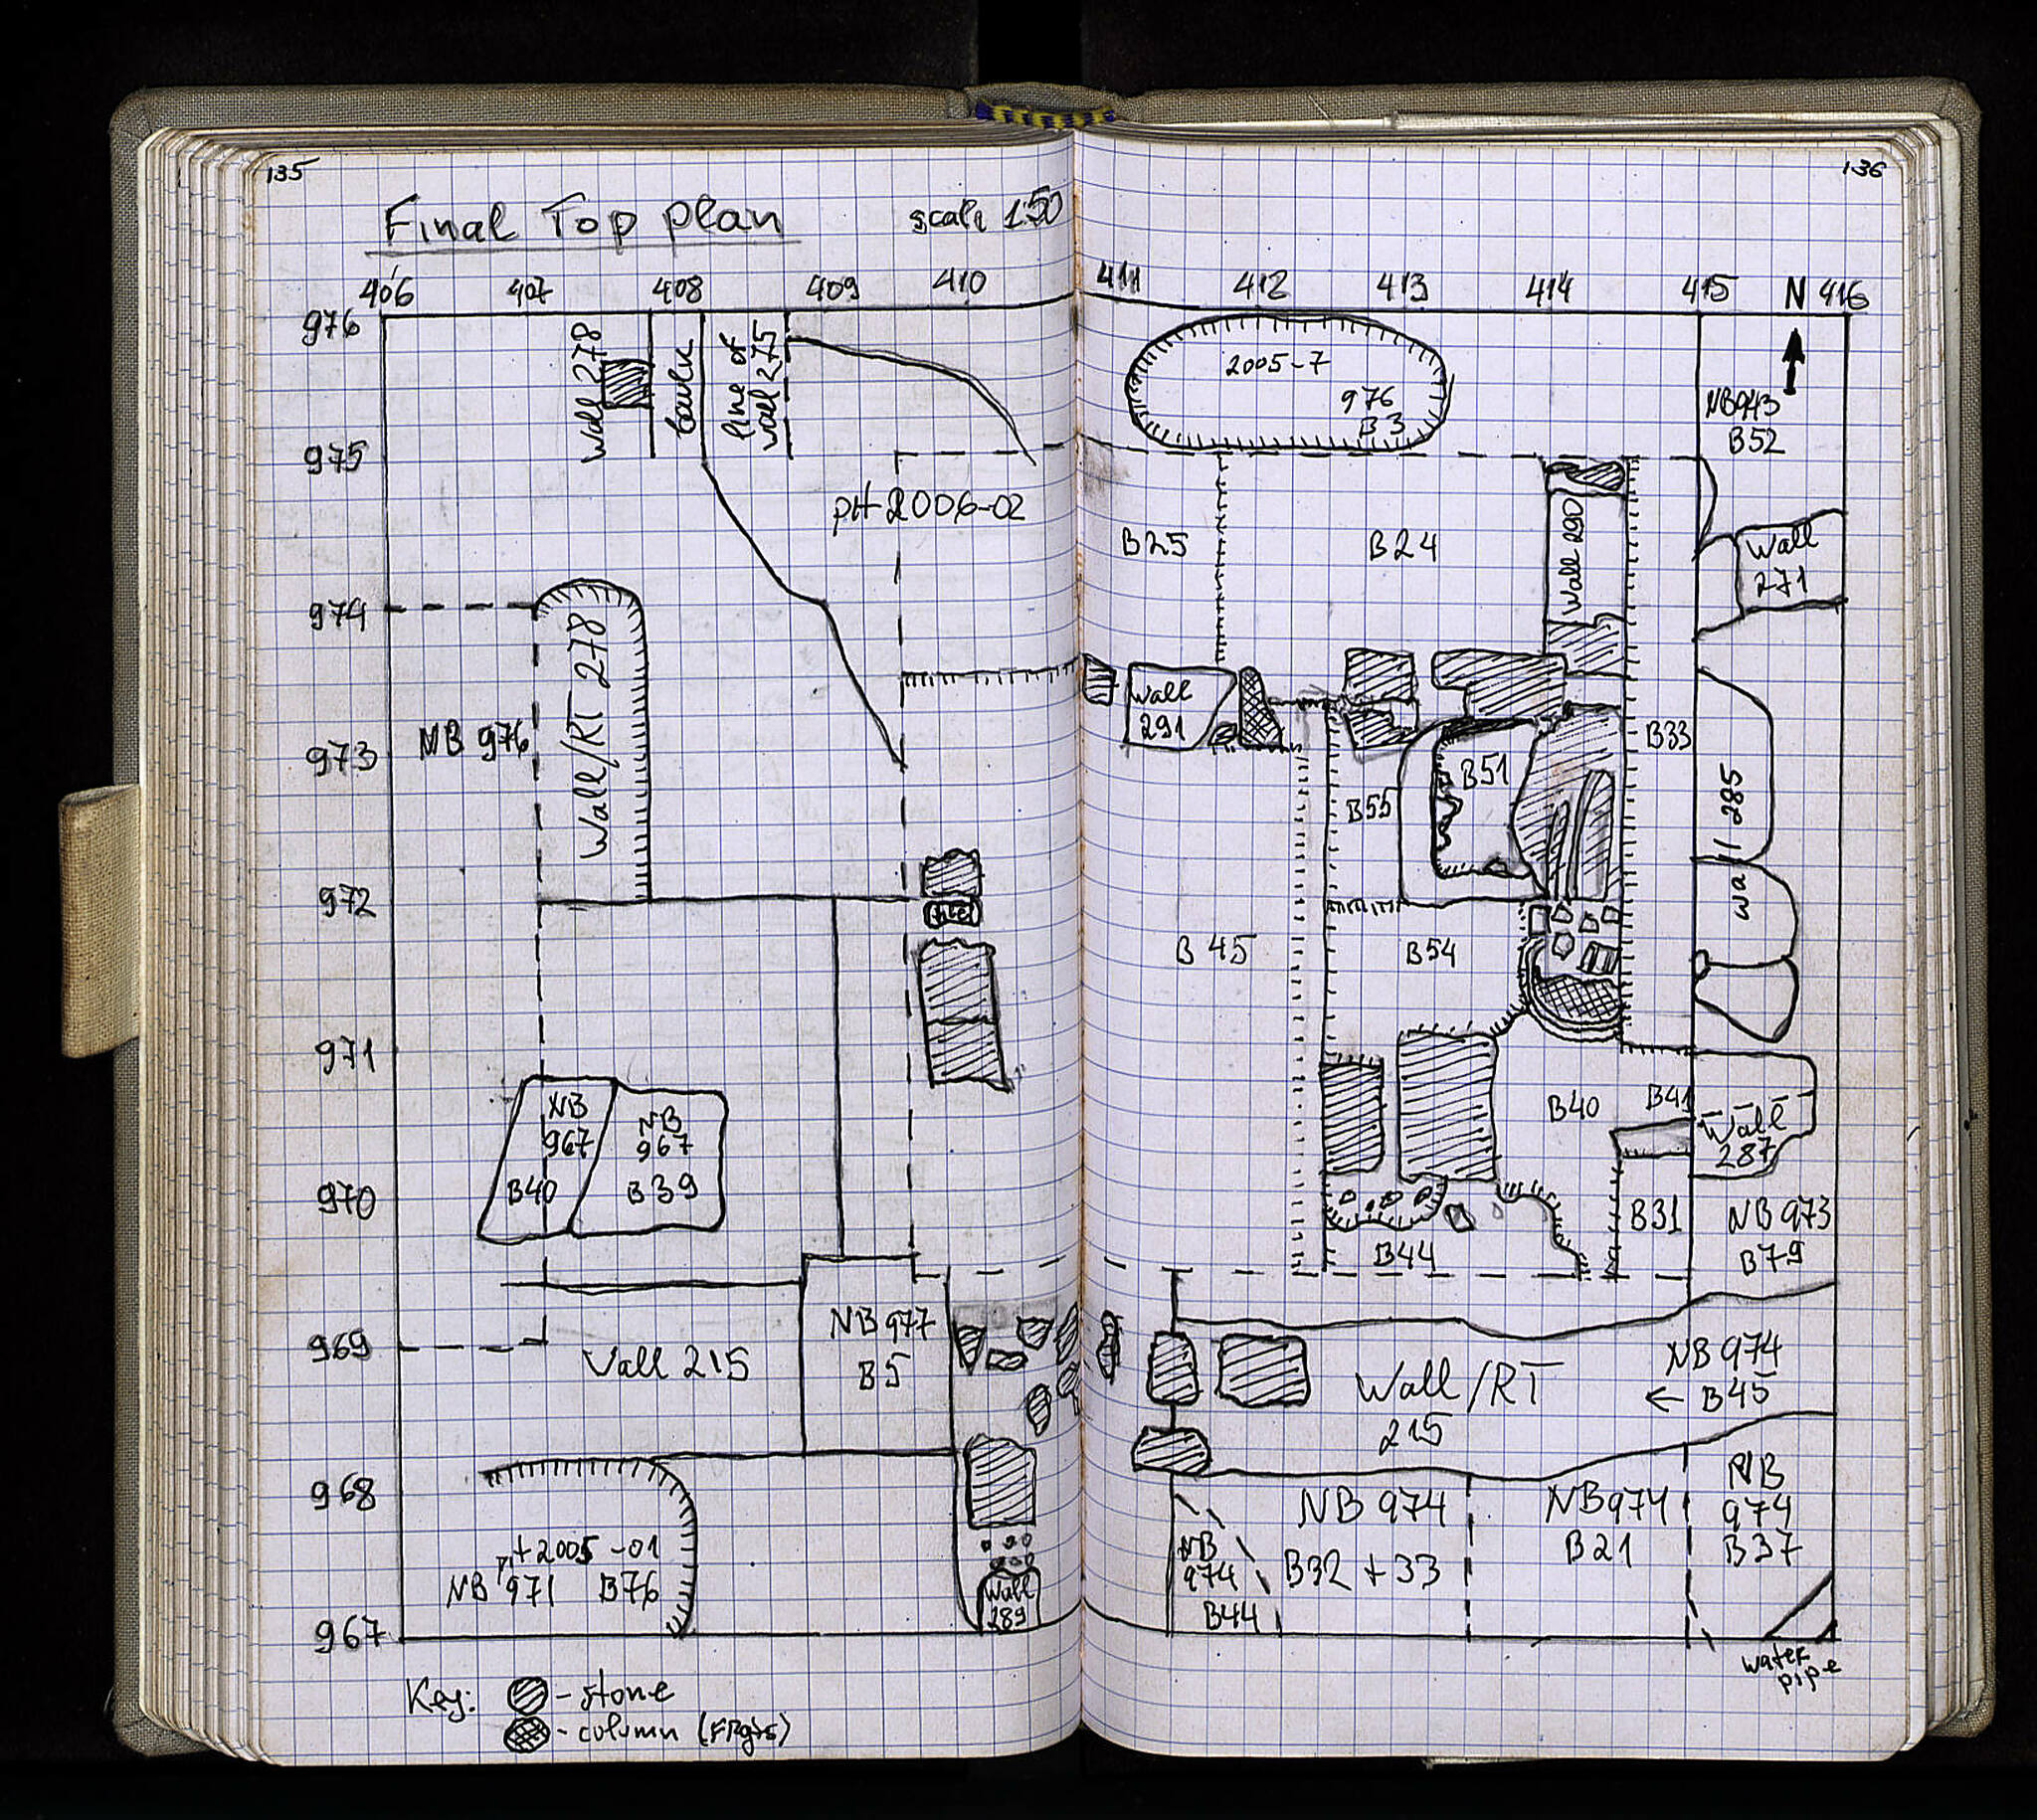 135
136
Final Top plan
scale 1:50
406 407 408 409 410 411 412 413 414 415 N 416
976
975
974
973
972
971
970
969
968
967
Wall 278
baulk
line of
wall 275
2005-7
976
B3
NB943
B52
pit 2006-02
B25
B24
Wall 290
Wall
271
Wall/RT 278
NB 976
Wall
291
B33
B51
B55
Wall 285
B45
B54
NB
967
B40
NB
967
B39
B40
B41
Wall
287
B31
NB 973
B79
B44
Wall 215
NB 977
B5
Wall/RT
215
NB 974
← B45
pit 2005-01
NB 971 B76
Wall
289
NB
974
B44
NB 974
B32 + 33
NB974
B21
NB
974
B37
water
pipe
Key: - stone
- column (FRgts)